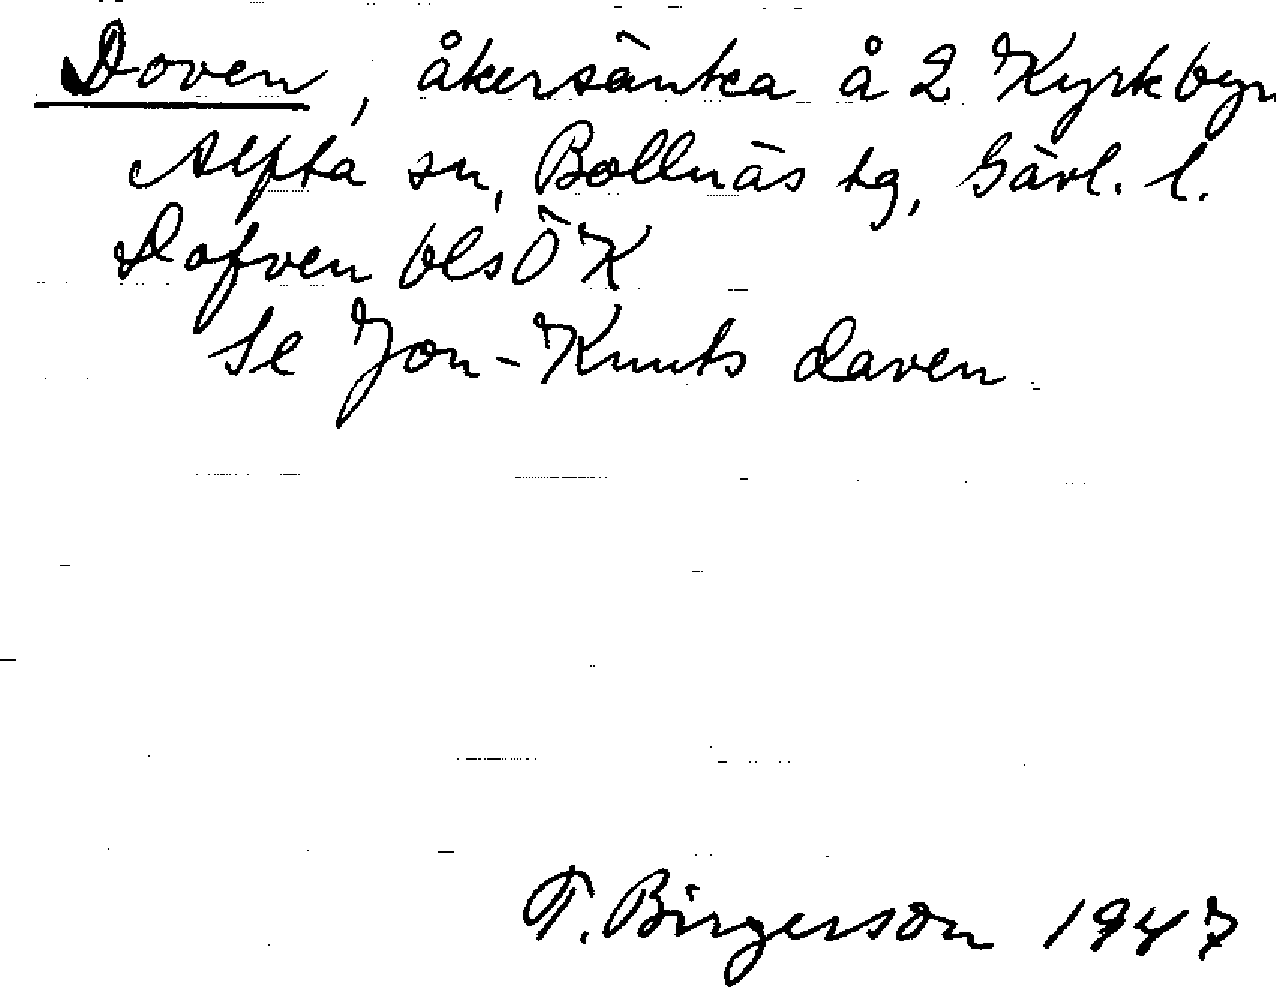 Doven, åkersänka å 2 Kyrkbyn
Alfta sn, Bollnäs tg, Gävl. l.
Dofven bls ÖK
Se Jon-Knuts daven
T. Birgerson 1947